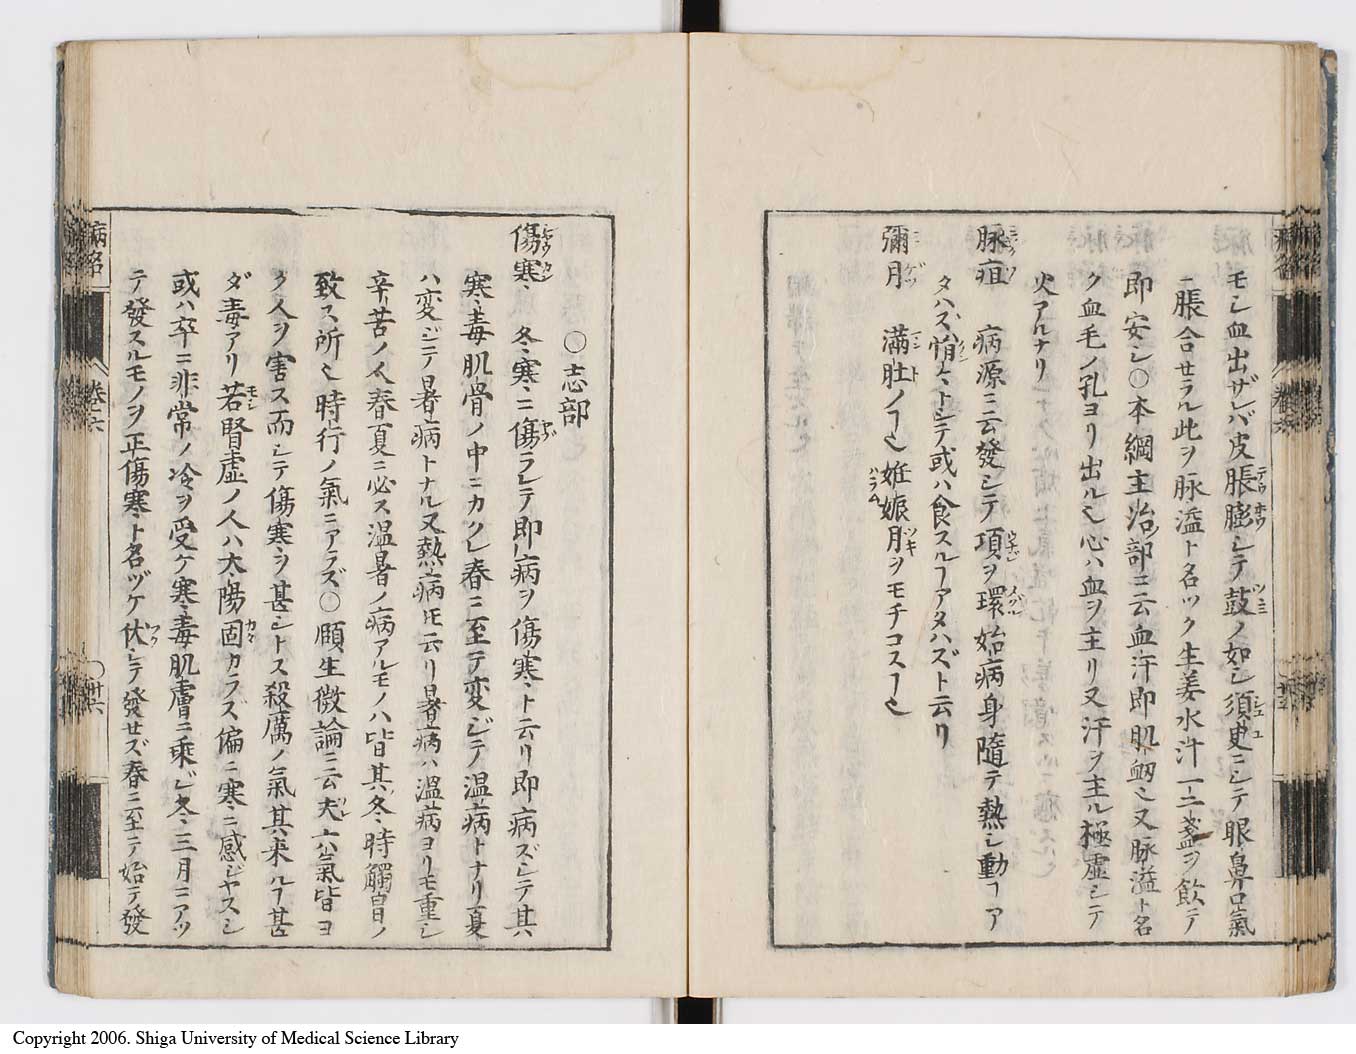 モシ血出ザレバ皮脹膨シテ鼓ノ如シ須臾ニシテ眼鼻口氣
ニ脹合セラル此ヲ脉溢ト名ツク生姜水汁一二盞ヲ飲テ
即安シ〇本綱主治部ニ云血汗即肌衂也又脉溢ト名
ク血毛ノ孔ヨリ出ル也心ハ血ヲ主リ又汗ヲ主ル極虚シテ
火アルナリ
脉疽 病源ニ云發シテ項ヲ環始病身隨テ熱シ動ヿア
タハズ悄々トシテ或ハ食スルヿアタハズト云リ
彌月 滿肚ノヿ也姙娠月ヲモチコスヿ也
〇志部
傷寒 冬寒ニ傷ラレテ即病ヲ傷寒ト云リ即病ズシテ其
寒毒肌骨ノ中ニカクレ春ニ至テ変ジテ温病トナリ夏
ハ変ジテ暑病トナル又熱病𪜈云リ暑病ハ温病ヨリモ重シ
辛苦ノ人春夏ニ必ス温暑ノ病アルモノハ皆其冬時觸冒ノ
致ス所也時行ノ氣ニアラズ〇頤生微論ニ云夫六氣皆ヨ
ク人ヲ害ス而シテ傷寒ヲ甚シトス殺厲ノ氣其来ルヿ甚
ダ毒アリ若腎虚ノ人ハ太陽固カラズ偏ニ寒ニ感ジヤスシ
或ハ卒ニ非常ノ冷ヲ受ケ寒毒肌膚ニ乘ジ冬三月ニアツ
テ發スルモノヲ正傷寒ト名ヅケ伏シテ發セズ春ニ至テ始テ發
病名
卷六
〇廿六
Copyright 2006. Shiga University of Medical Science Library